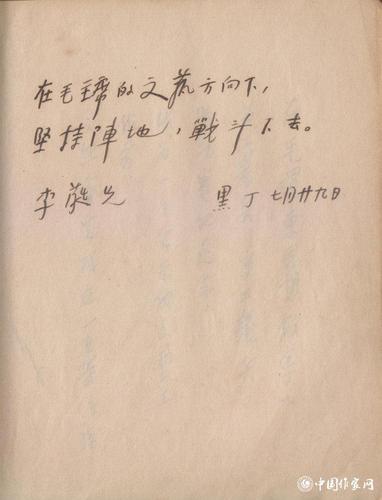 在毛主席的文艺方向下，
坚持陣地，戰斗下去。
李蕤兄 黑丁 七月廿九日
中国作家网